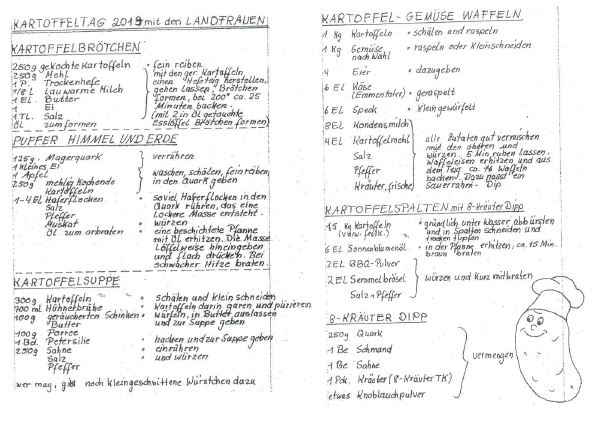 KARTOFFELTAG 2019 mit den LANDFRAUEN
KARTOFFELBRÖTCHEN
250g gekochte Kartoffeln • fein reiben
250g Mehl • mit den ger. Kartoffeln
1 P. Trockenhefe einen Hefeteig herstellen,
1/8 L Lauwarme Milch gehen lassen, Brötchen
1 EL. Butter formen, bei 200° ca. 25
1 Ei Minuten backen.
1 TL. Salz (mit 2 in Öl getauchte
Öl zum formen Esslöffel Brötchen formen)
PUFFER HIMMEL UND ERDE
125g. Magerquark verrühren
1 kleines Ei
1 Apfel waschen, schälen, fein reiben,
250g mehlig kochende in den Quark geben
Kartoffeln
1-4 EL Haferflocken • soviel Haferflocken in den
Salz Quark rühren, das eine
Pfeffer Lockere Masse entsteht.
Muskat • würzen
Öl zum anbraten • eine beschichtete Pfanne
mit Öl erhitzen. Die Masse
Löffelweise hineingeben
und flach drücken. Bei
schwacher Hitze braten.
KARTOFFELSUPPE
300g Kartoffeln • Schälen und klein schneiden
700 ml Hühnerbrühe • Kartoffeln darin garen und pürieren
100g geräucherten Schinken • würfeln, in Butter auslassen
Butter und zur Suppe geben
100g Porree
1 Bd. Petersilie • hacken und zur Suppe geben
250g Sahne • einrühren
Salz • und würzen
Pfeffer
wer mag, gibt noch kleingeschnittene Würstchen dazu
KARTOFFEL-GEMÜSE WAFFELN
1 Kg Kartoffeln • schälen und raspeln
1 Kg Gemüse • raspeln oder kleinschneiden
nach Wahl
4 Eier • dazugeben
6 EL Käse • geraspelt
(Emmentaler)
6 EL Speck • Klein gewürfelt
8 EL Kondensmilch
4 EL Kartoffelmehl alle Zutaten gut vermischen
Salz würzen. 5 Min. ruhen lassen.
Pfeffer Waffeleisen erhitzen und aus
Kräuter, frische dem Teig ca. 16 Waffeln
backen. Dazu passt ein
Sauerrahm - Dip
KARTOFFELSPALTEN mit 8-Kräuter Dipp
1,5 Kg Kartoffeln • gründlich unter Wasser abbürsten
(vorw. festk.) und in Spalten schneiden und
trocken tupfen
6 EL Sonnenblumenöl • in der Pfanne erhitzen, ca. 15 Min.
braun braten
2 EL BBQ-Pulver
2 EL Semmelbrösel würzen und kurz mitbraten
Salz + Pfeffer
8-KRÄUTER DIPP
250g Quark
1 Be Schmand
1 Be Sahne vermengen
1 Pck. Kräuter (8-Kräuter TK)
etwas Knoblauchpulver